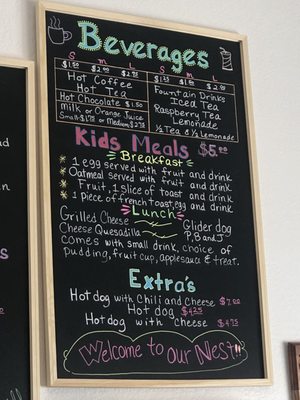 Beverages
S M L S M L
$1.50 $2.00 $2.50 $1.50 $2.00 $2.50
Hot Coffee
Hot Tea
Hot Chocolate $1.50
Milk or Orange Juice
Small-$1.75 or Medium $2.75
Fountain Drinks
Iced Tea
Raspberry Tea
Lemonade
½ Tea & ½ Lemonade
Kids Meals $5.00
Breakfast
* 1 egg served with fruit and drink
* Oatmeal served with fruit and drink
* Fruit, 1 slice of toast and drink
* 1 piece of french toast, egg and drink
Lunch
Grilled Cheese
Cheese Quesadilla
Glider dog
P, B and J
Comes with small drink, choice of
pudding, fruit cup, applesauce & treat.
Extra's
Hot dog with Chili and Cheese $7.00
Hot dog $4.25
Hot dog with cheese $4.75
Welcome to our Nest!!